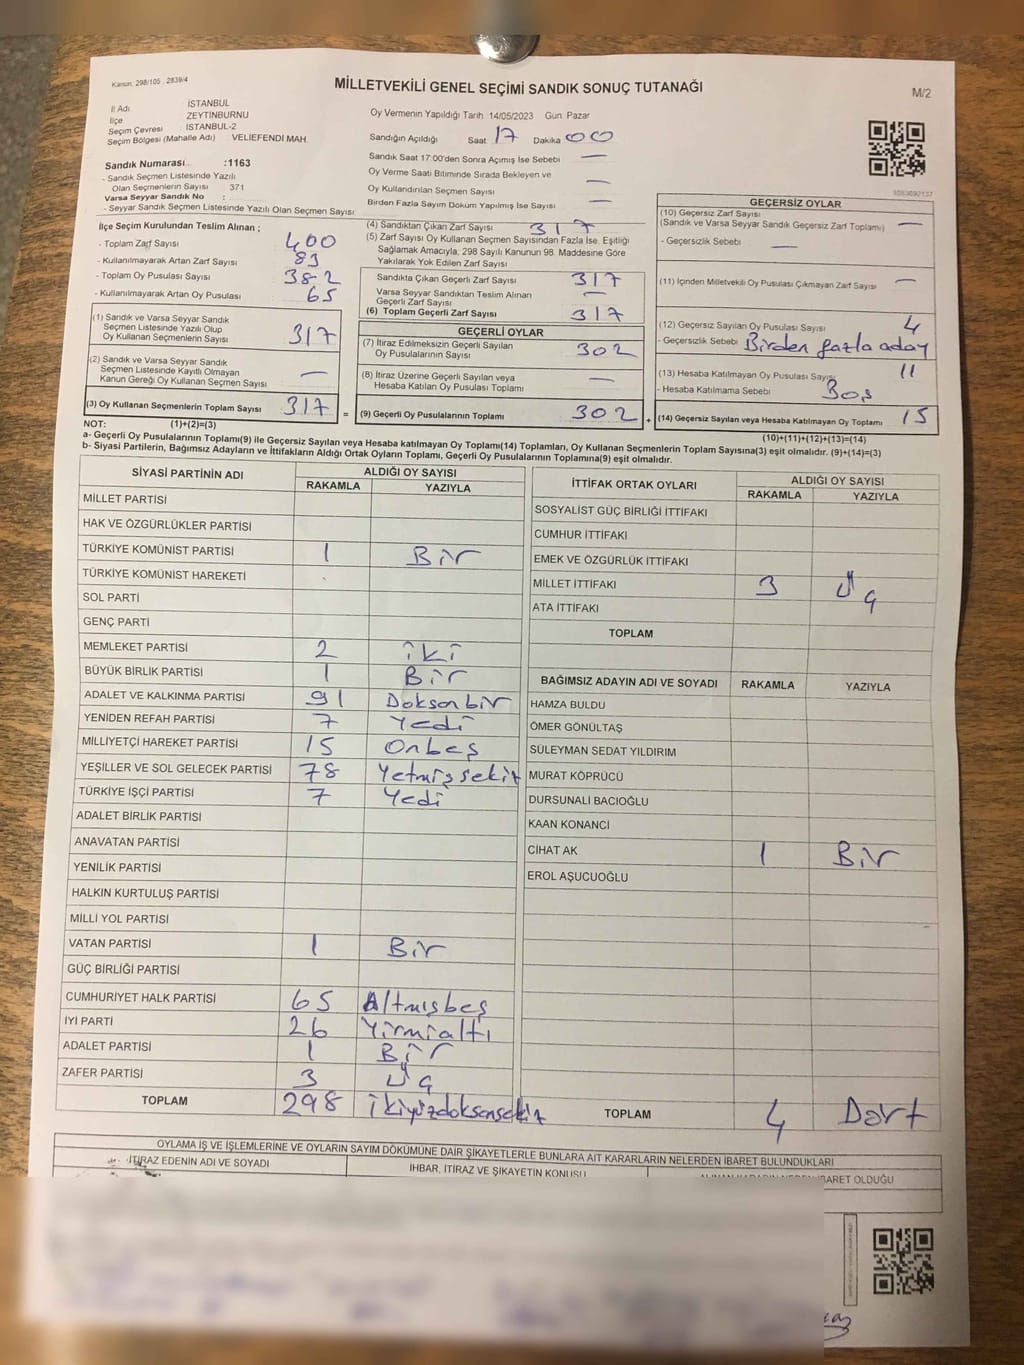 Kanun, 298/105 , 2839/4
MİLLETVEKİLİ GENEL SEÇİMİ SANDIK SONUÇ TUTANAĞI
M/2
İl Adı İSTANBUL
İlçe ZEYTİNBURNU
Seçim Çevresi İSTANBUL-2
Seçim Bölgesi (Mahalle Adı) VELİEFENDİ MAH.
Oy Vermenin Yapıldığı Tarih 14/05/2023 Gün Pazar
Sandığın Açıldığı Saat 17 Dakika 00
Sandık Saat 17:00'den Sonra Açılmış İse Sebebi —
Oy Verme Saati Bitiminde Sırada Bekleyen ve
Oy Kullandırılan Seçmen Sayısı —
Birden Fazla Sayım Döküm Yapılmış İse Sayısı —
Sandık Numarası :1163
- Sandık Seçmen Listesinde Yazılı
Olan Seçmenlerin Sayısı 371
Varsa Seyyar Sandık No :
- Seyyar Sandık Seçmen Listesinde Yazılı Olan Seçmen Sayısı
İlçe Seçim Kurulundan Teslim Alınan ;
- Toplam Zarf Sayısı 400
- Kullanılmayarak Artan Zarf Sayısı 83
- Toplam Oy Pusulası Sayısı 382
- Kullanılmayarak Artan Oy Pusulası 65
(1) Sandık ve Varsa Seyyar Sandık
Seçmen Listesinde Yazılı Olup
Oy Kullanan Seçmenlerin Sayısı 317
(2) Sandık ve Varsa Seyyar Sandık
Seçmen Listesinde Kayıtlı Olmayan
Kanun Gereği Oy Kullanan Seçmen Sayısı —
(3) Oy Kullanan Seçmenlerin Toplam Sayısı 317
NOT: (1)+(2)=(3)
(4) Sandıktan Çıkan Zarf Sayısı 317
(5) Zarf Sayısı Oy Kullanan Seçmen Sayısından Fazla İse, Eşitliği
Sağlamak Amacıyla, 298 Sayılı Kanunun 98. Maddesine Göre
Yakılarak Yok Edilen Zarf Sayısı
Sandıkta Çıkan Geçerli Zarf Sayısı 317
Varsa Seyyar Sandıktan Teslim Alınan
Geçerli Zarf Sayısı —
(6) Toplam Geçerli Zarf Sayısı 317
GEÇERLİ OYLAR
(7) İtiraz Edilmeksizin Geçerli Sayılan
Oy Pusulalarının Sayısı 302
(8) İtiraz Üzerine Geçerli Sayılan veya
Hesaba Katılan Oy Pusulası Toplamı —
= (9) Geçerli Oy Pusulalarının Toplamı 302 +
1083692137
GEÇERSİZ OYLAR
(10) Geçersiz Zarf Sayısı
(Sandık ve Varsa Seyyar Sandık Geçersiz Zarf Toplamı) —
- Geçersizlik Sebebi —
(11) İçinden Milletvekili Oy Pusulası Çıkmayan Zarf Sayısı —
(12) Geçersiz Sayılan Oy Pusulası Sayısı 4
- Geçersizlik Sebebi Birden fazla aday
(13) Hesaba Katılmayan Oy Pusulası Sayısı 11
- Hesaba Katılmama Sebebi Boş
(14) Geçersiz Sayılan veya Hesaba Katılmayan Oy Toplamı 15
(10)+(11)+(12)+(13)=(14)
a- Geçerli Oy Pusulalarının Toplamı(9) ile Geçersiz Sayılan veya Hesaba katılmayan Oy Toplamı(14) Toplamları, Oy Kullanan Seçmenlerin Toplam Sayısına(3) eşit olmalıdır. (9)+(14)=(3)
b- Siyasi Partilerin, Bağımsız Adayların ve İttifakların Aldığı Ortak Oyların Toplamı, Geçerli Oy Pusulalarının Toplamına(9) eşit olmalıdır.
SİYASİ PARTİNİN ADI ALDIĞI OY SAYISI
RAKAMLA YAZIYLA
MİLLET PARTİSİ
HAK VE ÖZGÜRLÜKLER PARTİSİ
TÜRKİYE KOMÜNİST PARTİSİ 1 Bir
TÜRKİYE KOMÜNİST HAREKETİ
SOL PARTİ
GENÇ PARTİ
MEMLEKET PARTİSİ 2 iki
BÜYÜK BİRLİK PARTİSİ 1 Bir
ADALET VE KALKINMA PARTİSİ 91 Doksanbir
YENİDEN REFAH PARTİSİ 7 Yedi
MİLLİYETÇİ HAREKET PARTİSİ 15 Onbeş
YEŞİLLER VE SOL GELECEK PARTİSİ 78 Yetmişsekiz
TÜRKİYE İŞÇİ PARTİSİ 7 Yedi
ADALET BİRLİK PARTİSİ
ANAVATAN PARTİSİ
YENİLİK PARTİSİ
HALKIN KURTULUŞ PARTİSİ
MİLLİ YOL PARTİSİ
VATAN PARTİSİ 1 Bir
GÜÇ BİRLİĞİ PARTİSİ
CUMHURİYET HALK PARTİSİ 65 Altmışbeş
İYİ PARTİ 26 Yirmialtı
ADALET PARTİSİ 1 Bir
ZAFER PARTİSİ 3 Üç
TOPLAM 298 ikiyüzdoksansekiz
İTTİFAK ORTAK OYLARI ALDIĞI OY SAYISI
RAKAMLA YAZIYLA
SOSYALİST GÜÇ BİRLİĞİ İTTİFAKI
CUMHUR İTTİFAKI
EMEK VE ÖZGÜRLÜK İTTİFAKI
MİLLET İTTİFAKI 3 Üç
ATA İTTİFAKI
TOPLAM
BAĞIMSIZ ADAYIN ADI VE SOYADI RAKAMLA YAZIYLA
HAMZA BULDU
ÖMER GÖNÜLTAŞ
SÜLEYMAN SEDAT YILDIRIM
MURAT KÖPRÜCÜ
DURSUNALİ BACIOĞLU
KAAN KONANCİ
CİHAT AK 1 Bir
EROL AŞUCUOĞLU
TOPLAM 4 Dört
OYLAMA İŞ VE İŞLEMLERİNE VE OYLARIN SAYIM DÖKÜMÜNE DAİR ŞİKAYETLERLE BUNLARA AİT KARARLARIN NELERDEN İBARET BULUNDUKLARI
İTİRAZ EDENİN ADI VE SOYADI
İHBAR, İTİRAZ VE ŞİKAYETİN KONUSU
OLDUĞU